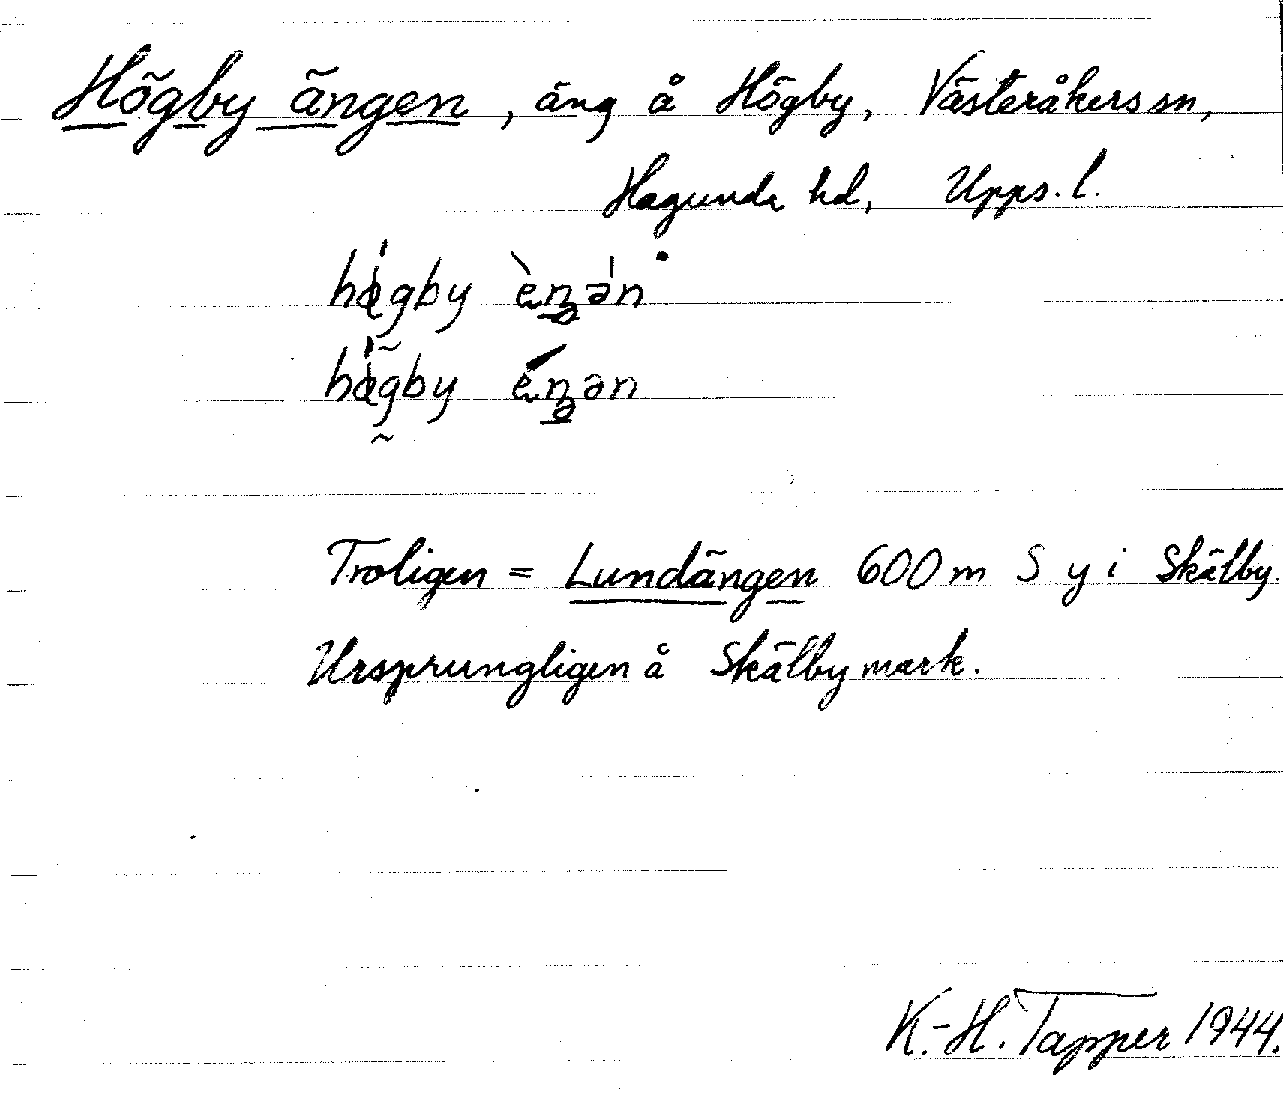 Högby ängen, äng å Högby, Västeråkers sn,
Hagunda hd, Upps. l.
Troligen = Lundängen 600 m S y i Skälby.
Ursprungligen å Skälby mark.
K.-H. Tapper 1944.